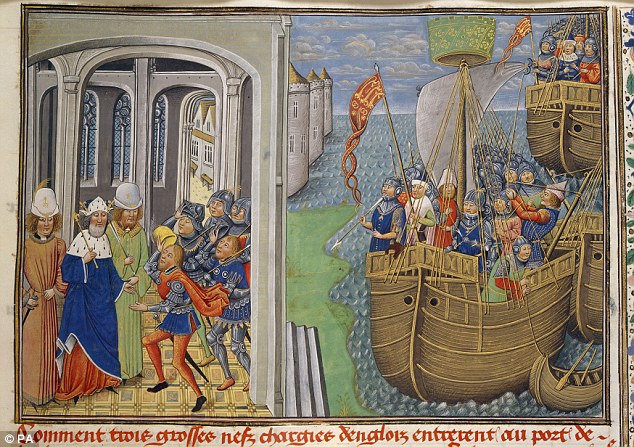 Comment trois grosses nefz chargies denglois entrerent au port de
© PA